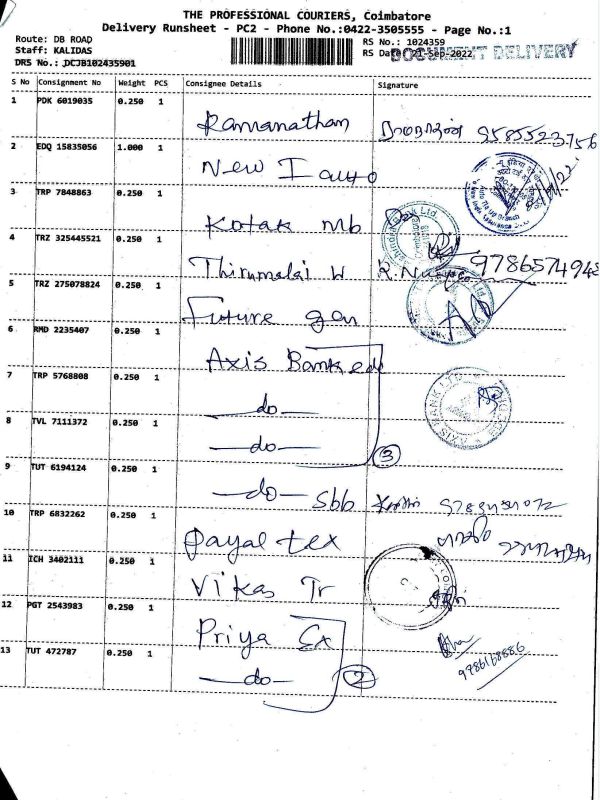 THE PROFESSIONAL COURIERS, Coimbatore
Delivery Runsheet - PC2 - Phone No.:0422-3505555 - Page No.:1
Route: DB ROAD
RS No.: 1024359
Staff: KALIDAS
RS Date: 21-Sep-2022
DOCUMENT DELIVERY
DRS No.: DCJB102435901
S No Consignment No Weight PCS Consignee Details Signature
1 PDK 6019035 0.250 1
Ramanatham 9585523756
2 EDQ 15835056 1.000 1
New I auto
3 TRP 7848863 0.250 1
Kotak Mb
4 TRZ 325445521 0.250 1
Thirumalai W 9786574948
5 TRZ 275078824 0.250 1
Future gen
6 RMD 2235407 0.250 1
Axis Bank
7 TRP 5768808 0.250 1
do
8 TVL 7111372 0.250 1
do
3
9 TUT 6194124 0.250 1
do Sbb
10 TRP 6832262 0.250 1
Payal tex
11 ICH 3402111 0.250 1
Vikas Tr
12 PGT 2543983 0.250 1
Priya Ex
13 TUT 472787 0.250 1
do 2
9786168886